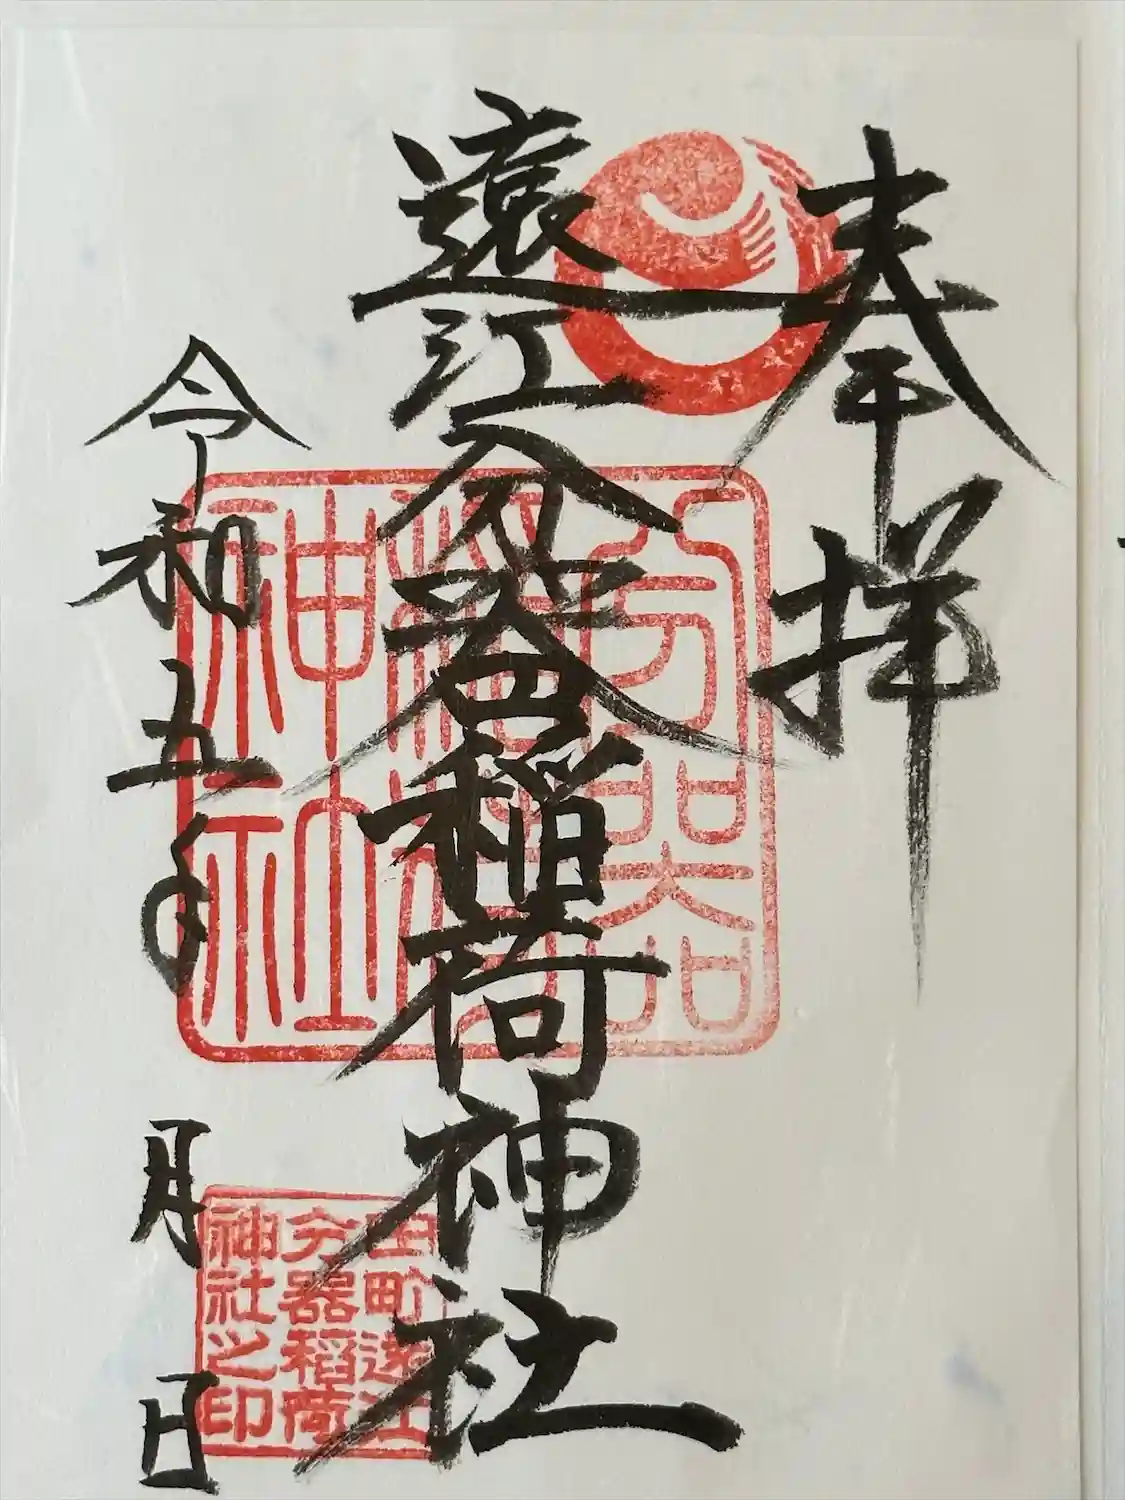 奉拝
遠江分器稲荷神社
令和五年
月
日
分器
稲荷
神社
田町遠江
分器稲荷
神社之印